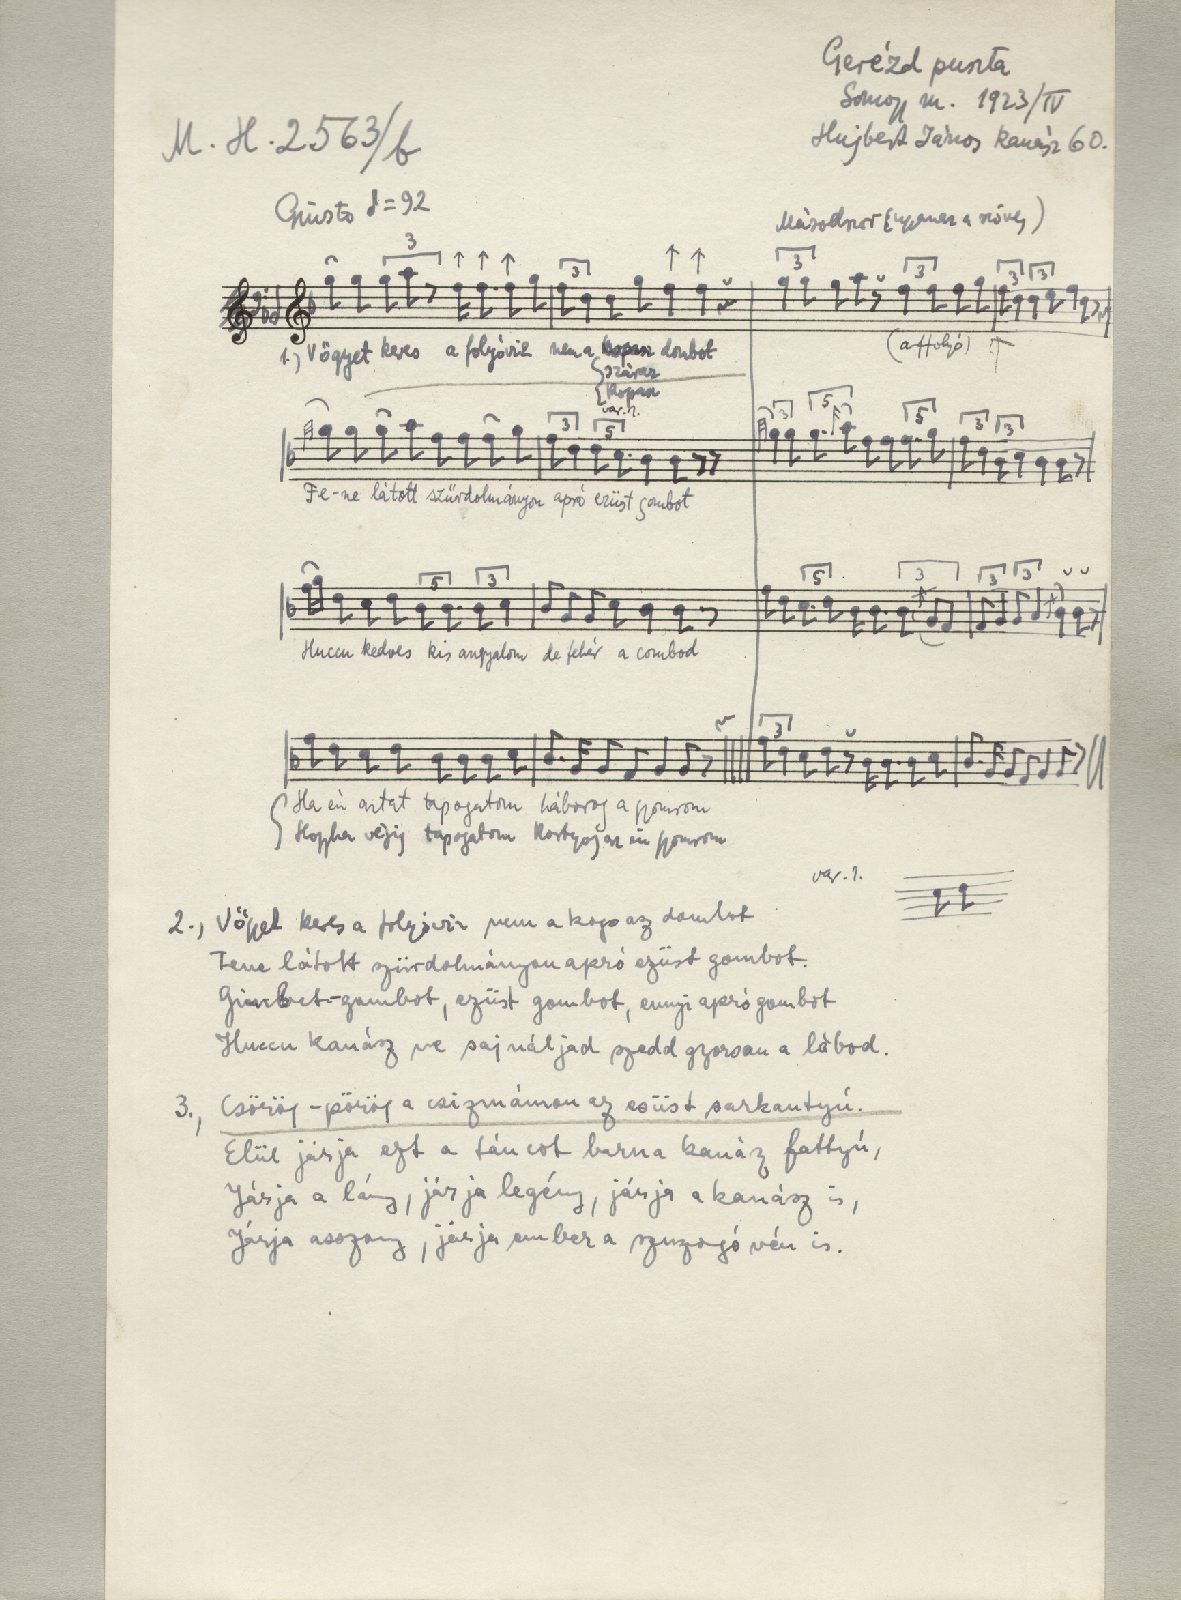 Gerézd puszta
Somogy m. 1923/IV
Hujbert János kanász 60.
M. H. 2563/b
Giusto = 92
Másodszor (ugyanez a szöveg)
3 3 3 3 3 3
1.) Vögyet keres a folyóviz nem a kopasz dombot
(a ffolyó)
száraz
kopasz
var. 2.
3 5 3 5 5 3 3
Fe-ne látott szűrdolmányon apró ezüst gombot
5 3 5 3 3 3
Huccu kedves kis angyalom de fehér a combod
3
Ha én aztat tapogatom háborog a gyomrom
Hopha végig tapogatom kortyog az én gyomrom
var. 2.
2., Vögyet keres a folyóviz nem a kopasz dombot
Fene látott szürdolmányon apró ezüst gombot.
Gimbet-gombot, ezüst gombot, ennyi apró gombot
Huccu kanász ne sajnáljad szedd gyorsan a lábod.
3., Csörög-pörög a csizmámon az esüst sarkantyú.
Elül járja ezt a táncot barna kanász fattyú,
Járja a lány, járja legény, járja a kanász is,
Járja asszony, járja ember a szuszogó vén is.